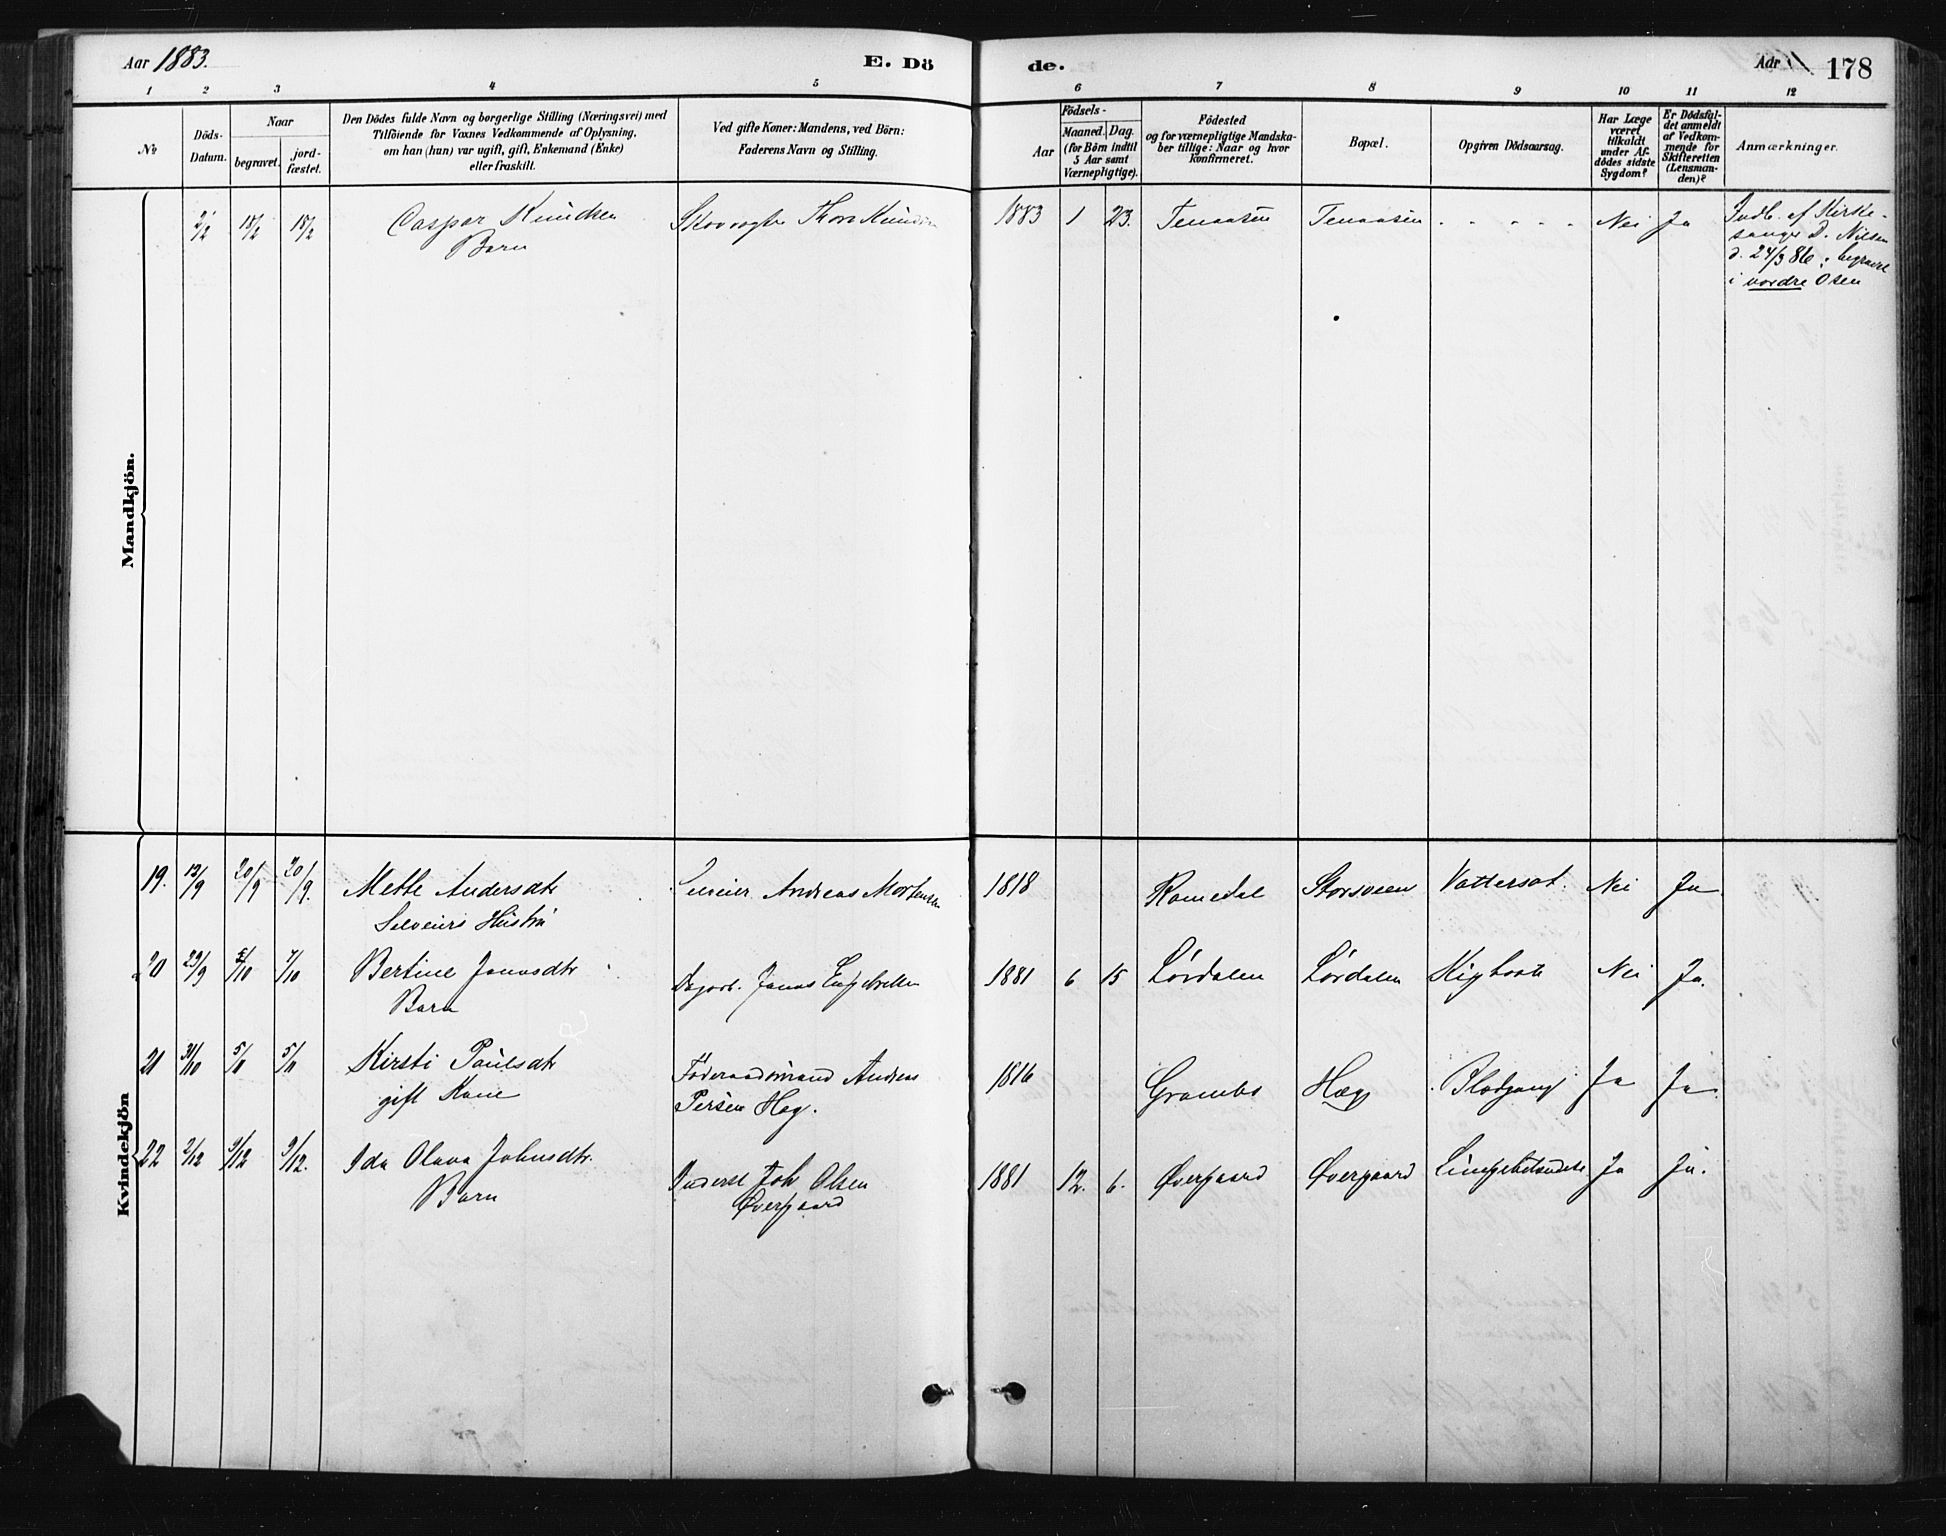 Aar 1883.
E. Dö
de.
Aar
178
1 2 3 4 5 6 7 8 9 10 11 12
No
Döds-Datum.
Naar
begravet.
jord-fæstet.
Den Dödes fulde Navn og borgerlige Stilling (Næringsvei) med
Tilföiende for Voxnes Vedkommende af Oplysning,
om han (hun) var ugift, gift, Enkemand (Enke)
eller fraskilt.
Ved gifte Koner: Mandens, ved Börn:
Faderens Navn og Stilling.
Födsels-
Aar
Maaned. Dag.
(for Börn indtil
5 Aar samt
Værnepligtige).
Födested
og for værnepligtige Mandska-
ber tillige: Naar og hvor
konfirmeret.
Bopæl.
Opgiven Dödsaarsag.
Har Læge
været
tilkaldt
under Af-
dödes sidste
Sygdom?
Er Dödsfal-
det anmeldt
af Vedkom-
mende for
Skifteretten
(Lensman-
den)?
Anmærkninger.
Mandkjön.
2/2 18/2 18/2 Casper Knudsen Skovvogter Thore Knudsen 1883 1 23. Tenaasen Tenaasen Nei Ja Indb. af Kirke-
Barn sanger D. Nilsen
d. 24/3 86; begravet
i nordre Osen
Kvindekjön
19. 13/9 20/9 20/9. Mette Andersdtr Andreas Mortensen 1818 Romedal Storsveen Vattersot. Nei Ja
Selveiers Hustru
20 29/9 5/10 7/10 Bertine Jonasdtr Dagarb. Jonas Engebretsen 1881 6 15 Lørdalen Lørdalen Kighoste Nei Ja.
Barn
21 31/10 5/11 5/11 Kirsti Paulsdtr Føderaadsmand Andreas 1816 Grambo Hag Blodgang Ja Ja.
gift Kone Persen Hag.
22 2/12 9/12 9/12. Ida Olava Johnsdtr. Inderst Joh Olsen 1881 12. 6. Øvergaard Øvergaard Lungebetændelse Ja Ja.
Barn Øvergaard